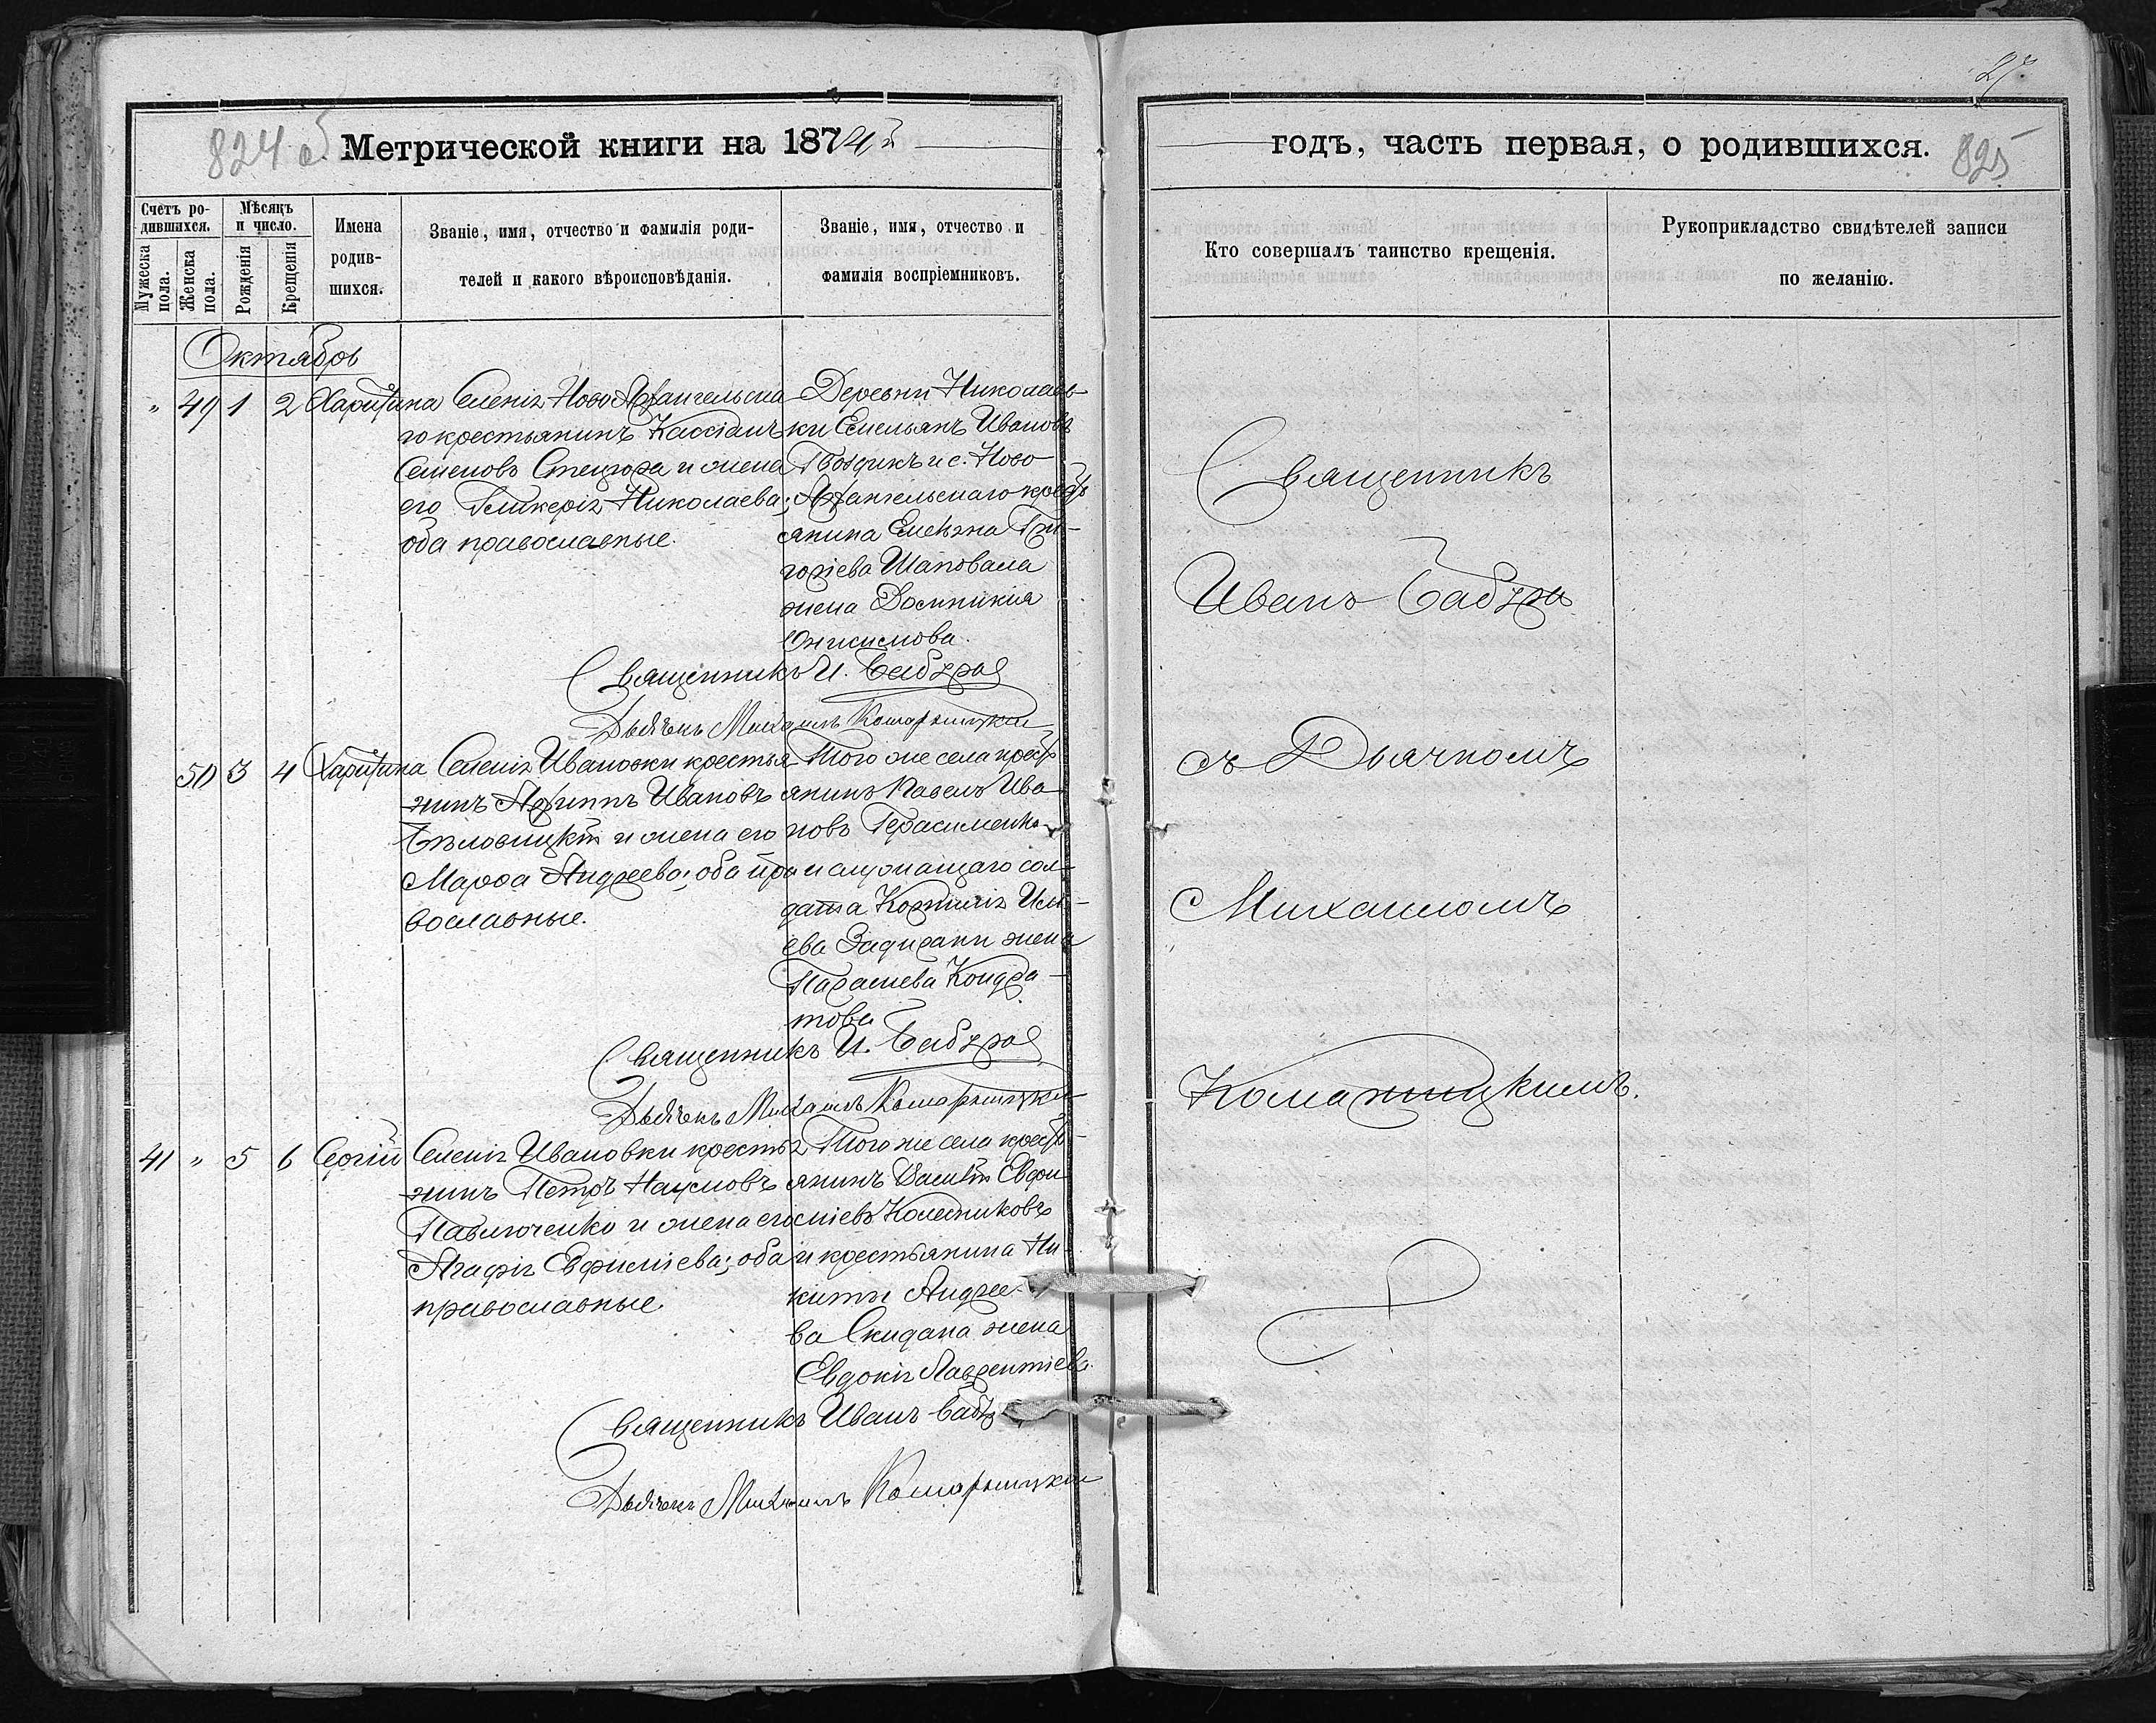 27.
824 об Метрической книги на 1874й
годъ, часть первая, о родившихся. 825
Счетъ ро-
дившихся.
Мѣсяцъ
и число.
Мужеска
пола.
Женска
пола.
Рожденія
Крещенія
Имена
родив-
шихся.
Званіе, имя, отчество и фамилія роди-
телей и какого вѣроисповѣданія.
Званіе, имя, отчество и
фамилія воспріемниковъ.
Кто совершалъ таинство крещенія.
Рукоприкладство свидѣтелей записи
по желанію.
Октябрь
" 49 1 2 Харитина
Селенія Ново Архангельска
го крестьянинъ Кассіанъ
Семеновъ Стецюра и жена
его Гликерія Николаева;
оба православные.
Деревни Николаев-
ки Емельянъ Ивановъ
Гвоздикъ и с. Ново
Архангельскаго крест
янина Григо
ріева Шаповала
жена Домникія
Онисимова.
Священникъ И. Бабура
Дьячекъ Михаилъ Комарницкій
50 3 4 Харитина
Селенія Ивановки крестья
нинъ Архиппъ Ивановъ
Бѣловицкій и жена его
Марфа Андреева; оба пра
вославные.
Того же села крест
янинъ Павелъ Ива
новъ Герасименко
и служащаго сол
дата Корнилія Иль-
ева Задирани жена
Параскева Кондра-
това
Священникъ И. Бабура
Дьячекъ Михаилъ Комарницкій
41 " 5 6 Сергій
Селенія Ивановки крестья
нинъ Петръ Наумовъ
Павлюченко и жена его
Агафія Евфиміева; оба
православные.
Того же села крест-
янинъ Василій Евфи
міевъ Колесниковъ
и крестьянина Ни-
киты Андрее-
ва Скидана жена
Евдокія Лаврентіева.
Священникъ Иванъ Бабу
Дьячекъ Михаилъ Комарницкій
Священникъ
Иванъ Бабура
съ Дьячкомъ
Михаиломъ
Комарницкимъ.